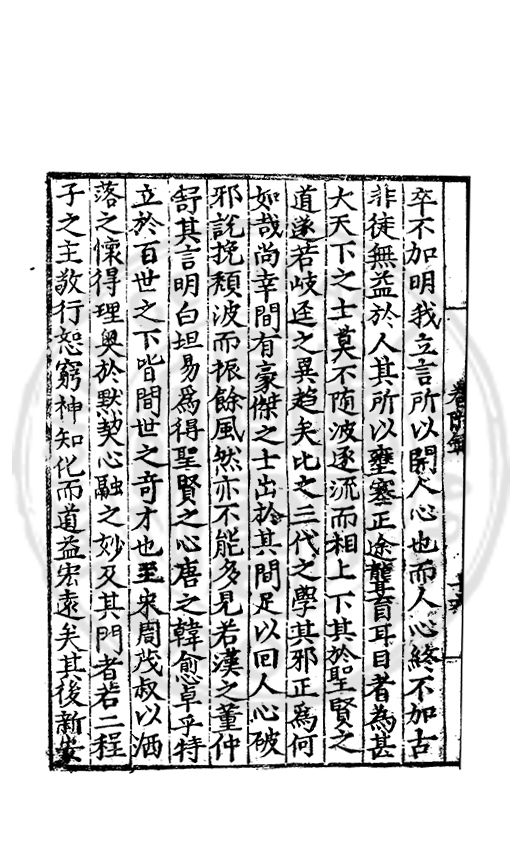 卒不加明我立言所以開人心也而人心終不加古
非徒無益於人其所以壅塞正途聾盲耳目者為甚
大天下之士莫不随波逐流而相上下其於聖賢之
道遂若岐逕之異趋矣比之三代之學其邪正為何
如哉尚幸間有豪傑之士出於其間足以回人心破
邪說挽頽波而振餘風然亦不能多見若漢之董仲
舒其言明白坦易為得聖賢之心唐之韓愈卓乎特
立於百世之下皆間世之奇才也至宋周茂叔以洒
落之懷得理奥於默契心融之妙及其門者若二程
子之主敬行恕窮神知化而道益宏遠矣其後新安